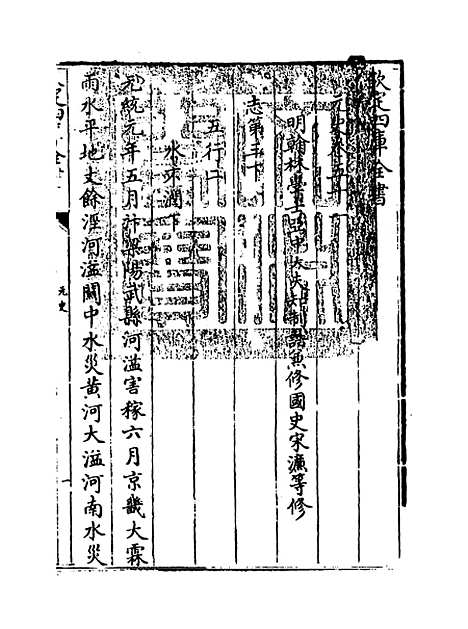 欽定四庫全書
元史卷五十一
明翰林學士亞中大夫知制誥兼修國史宋濂等修
志第三
五行二
水不潤下
元統元年五月汴梁陽武縣河溢害稼六月京畿大霖
雨水平地丈餘涇河溢關中水災黃河大溢河南水災
元史